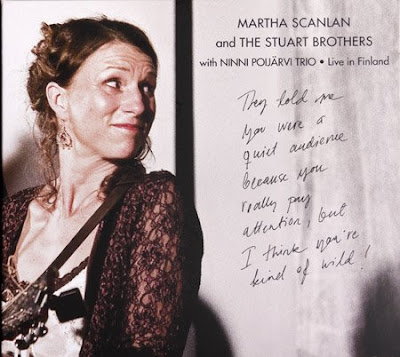 MARTHA SCANLAN
and THE STUART BROTHERS
with NINNI POIJÄRVI TRIO • Live in Finland
They told me
you were a
quiet audience
because you
really pay
attention, but
I think you're
kind of wild!